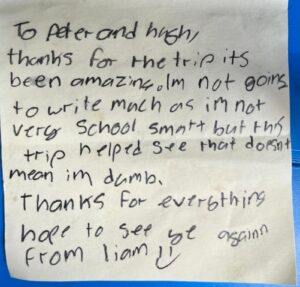 To Peter and hugh,
thanks for the trip its
been amazing. Im not going
to write much as im not
very school smart but this
trip helped see that doesnt
mean im dumb.
Thanks for everything
hope to see ye againn
From liam